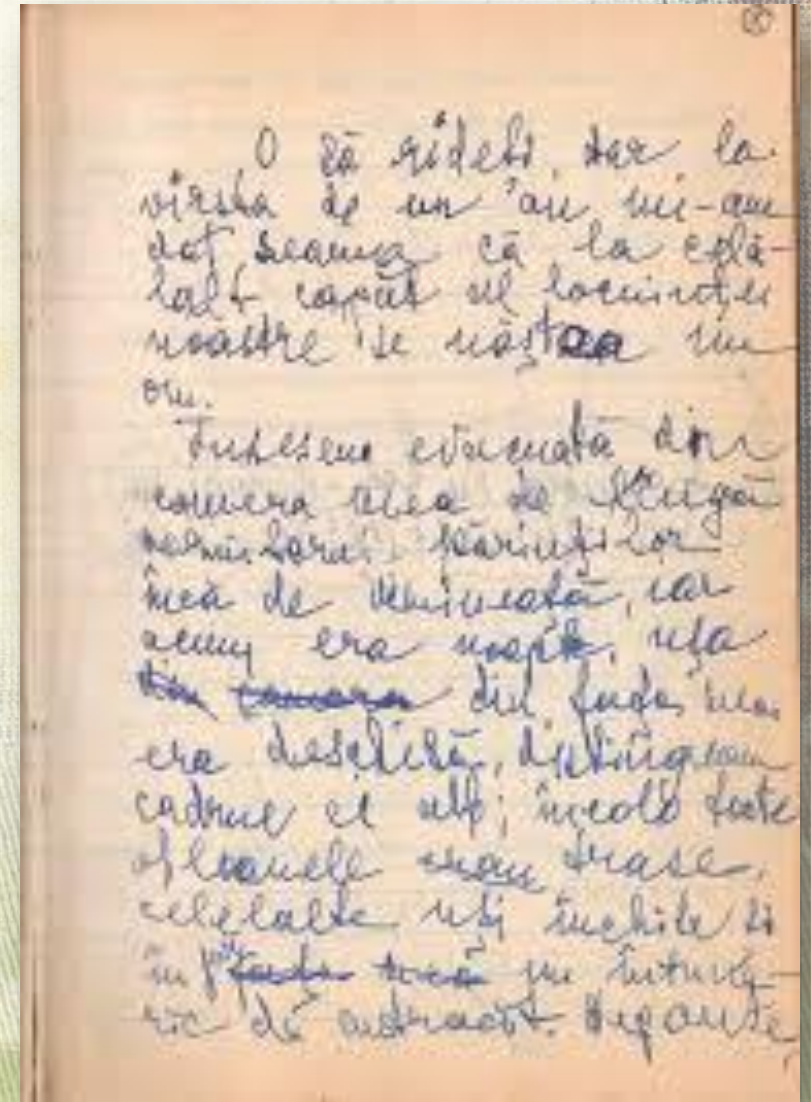 O să rîdeți, dar la
vîrsta de un an, mi-am
dat seama că la celă-
lalt capăt al locuinței
noastre se năștea un
om.
Fusesem evacuată din
camera mea de lîngă
dormitorul părinților
încă de dimineață, iar
acum era noapte, ușa
din camera din fața mea
era deschisă, distingeam
cadrul ei alb; încolo toate
obloanele erau trase,
celelalte uși închise și
în față mică un întune-
ric de antracit.